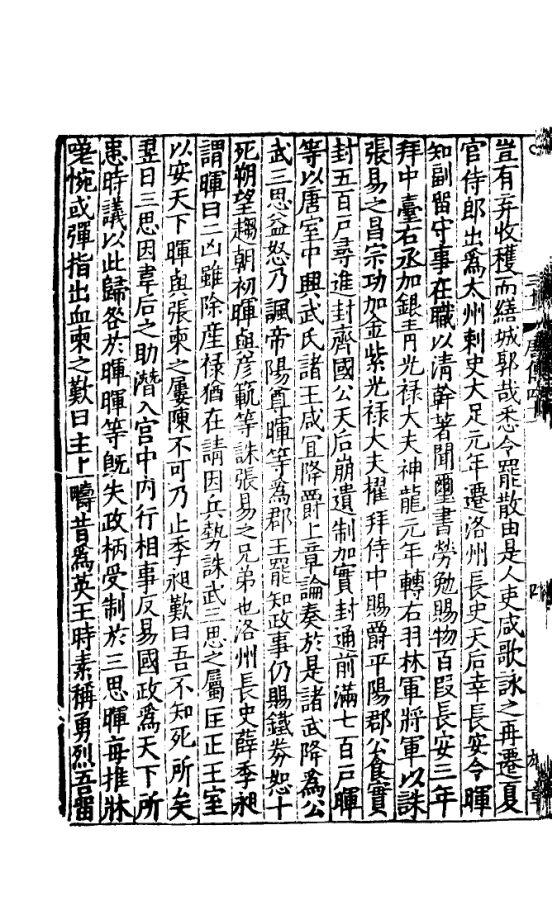 豈有弃收穫而繕城郭哉悉令罷散由是人吏咸歌詠之再遷夏
官侍郎出爲太州刺史大足元年遷洛州長史天后幸長安令暉
知副留守事在職以清幹著聞璽書勞勉賜物百段長安三年
拜中臺右丞加銀青光禄大夫神龍元年轉右羽林軍將軍以誅
張易之昌宗功加金紫光禄大夫擢拜侍中賜爵平陽郡公食實
封五百戸尋進封齊國公天后崩遺制加實封通前滿七百戸暉
等以唐室中興武氏諸王咸宜降爵上章論奏於是諸武降爲公
武三思益怒乃諷帝陽尊暉等爲郡王罷知政事仍賜鐵券恕十
死朔望趨朝初暉與彦範等誅張易之兄弟也洛州長史薛季昶
謂暉曰二凶雖除産禄猶在請因兵勢誅武三思之屬匡正王室
以安天下暉與張柬之屢陳不可乃止季昶歎曰吾不知死所矣
翌日三思因韋后之助潛入宫中内行相事反易國政爲天下所
患時議以此歸咎於暉暉等旣失政柄受制於三思暉每推牀
嗟惋或彈指出血柬之歎曰主上疇昔爲英王時素稱勇烈吾留